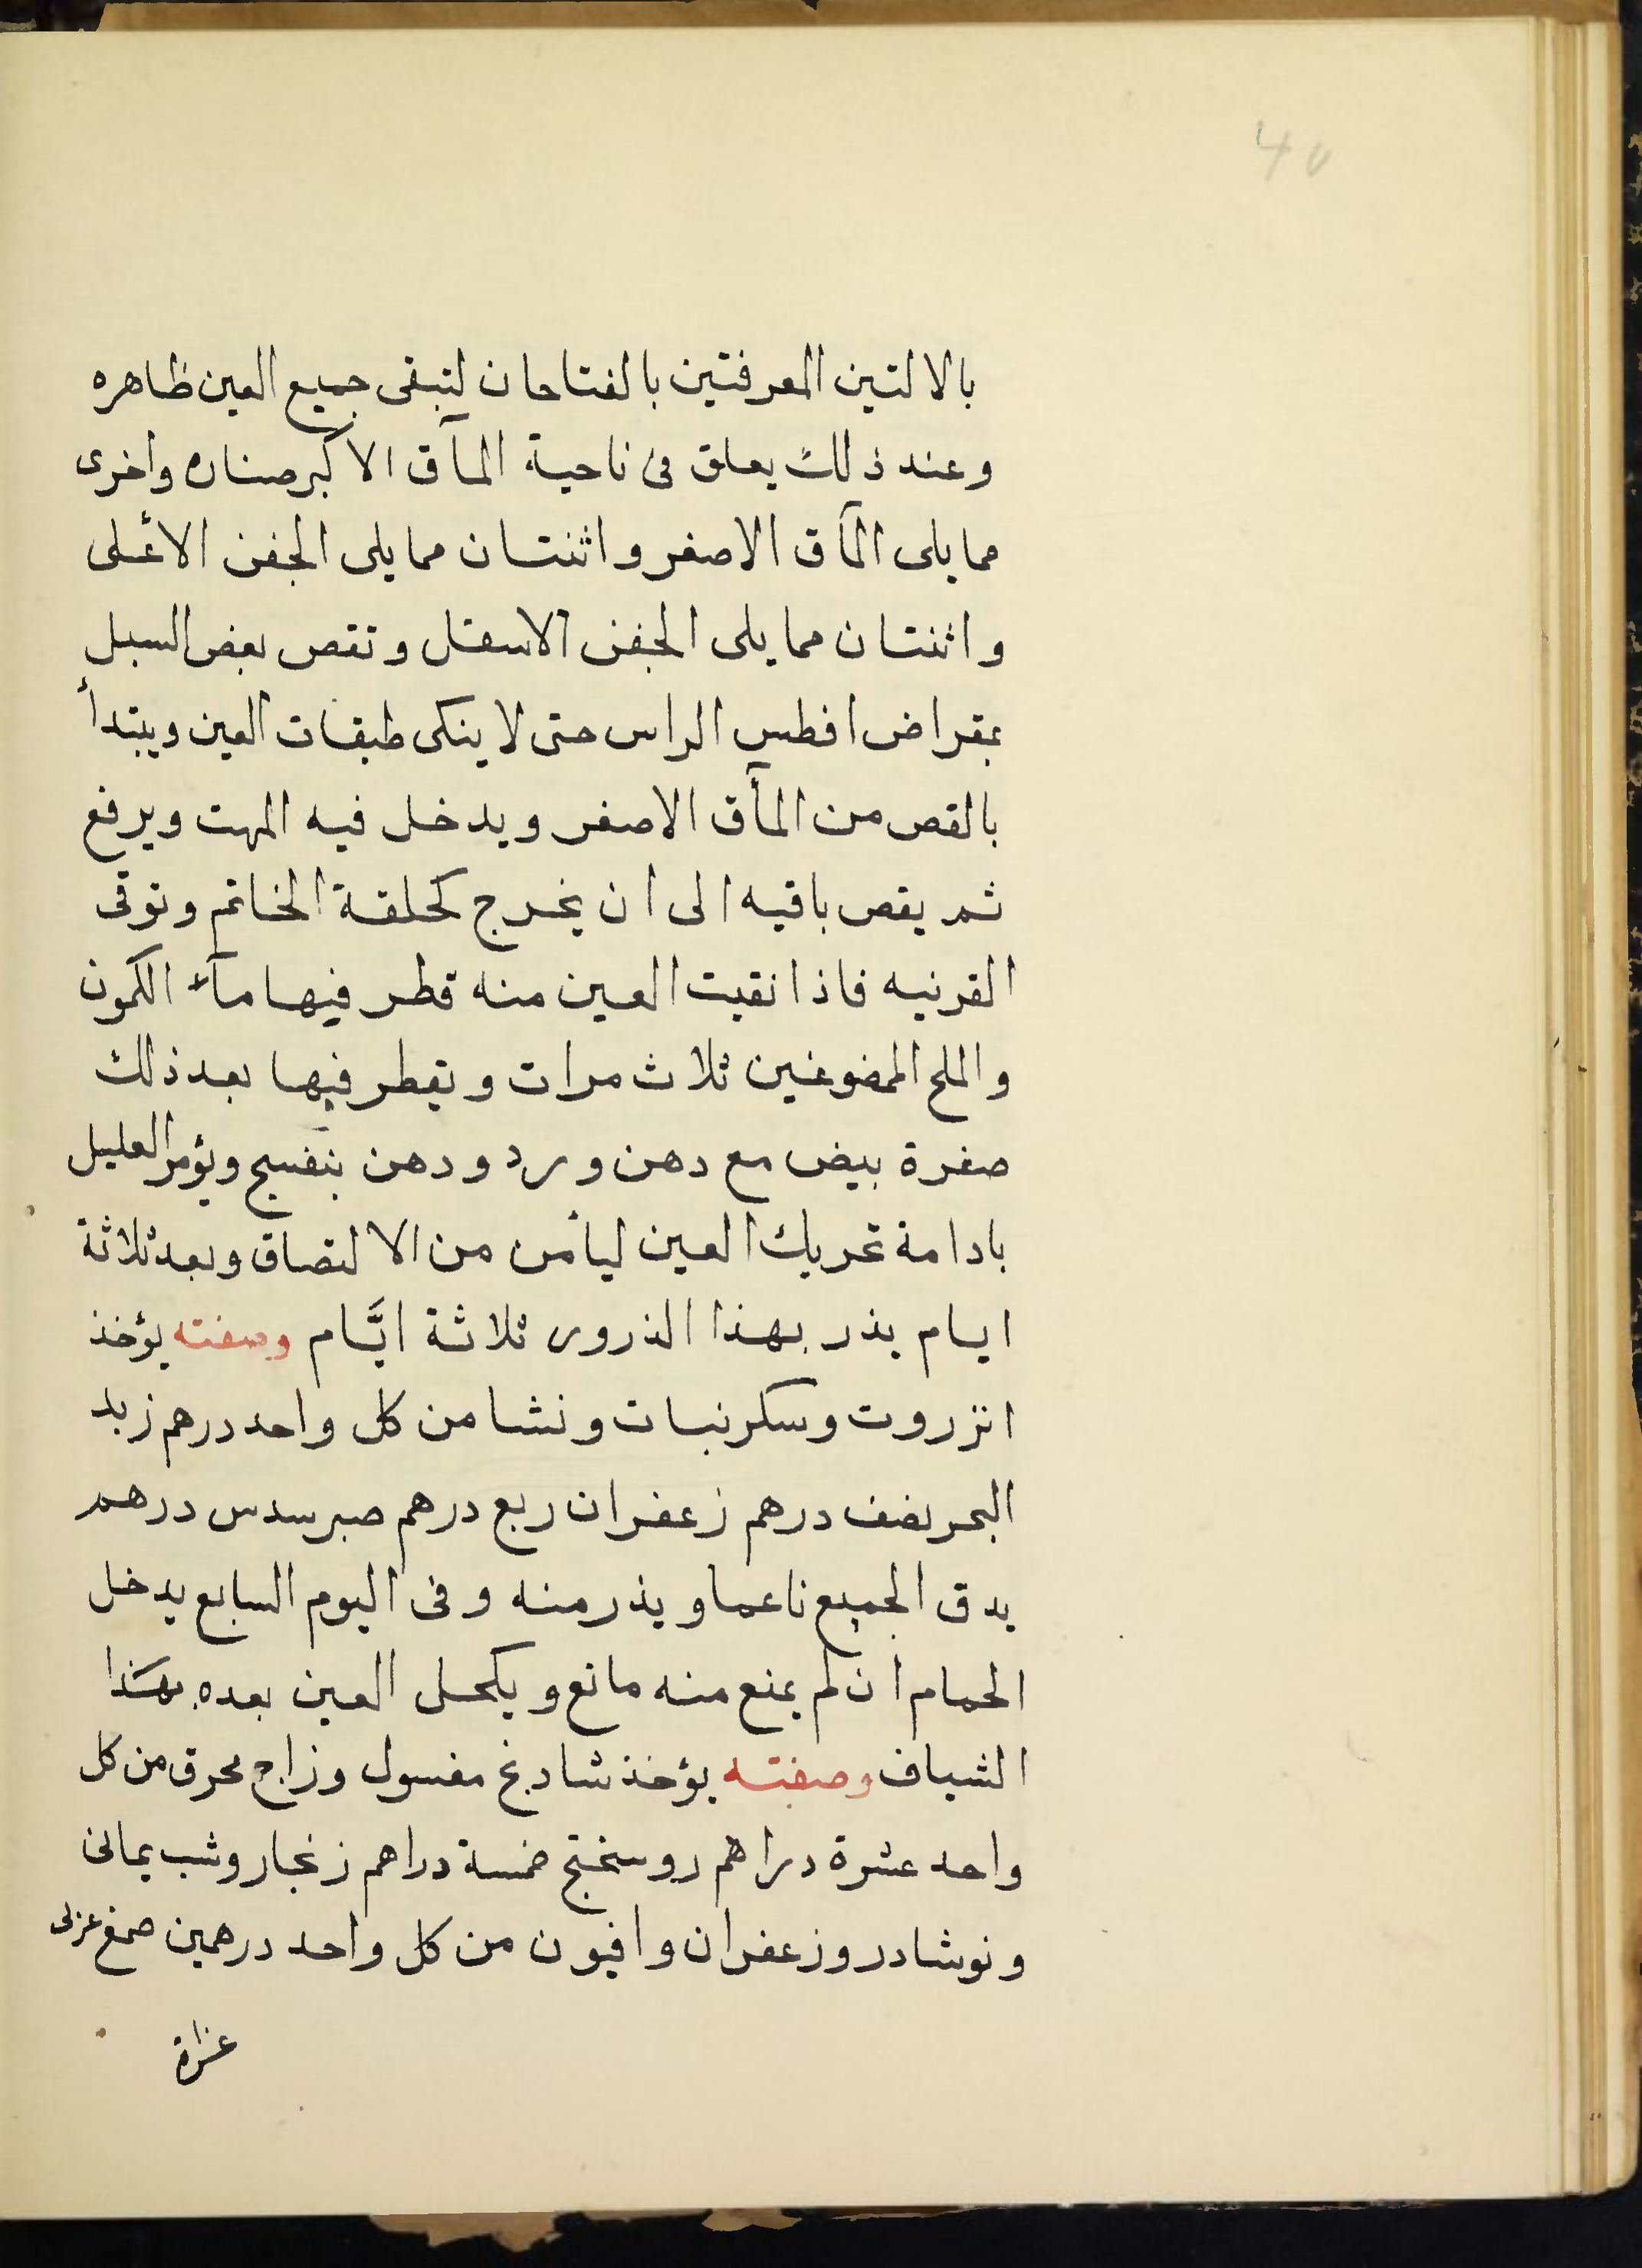 40
بالالتين المعرفتين بالفتاحان لتبقى جميع العين ظاهره
وعند ذلك يعلق فى ناحية المآق الاكبر صناره واخرى
مما يلى المآق الاصغر واثنتان مما يلى الجفن الأعلى
واثنتان مما يلى الجفن الاسفل وتقص بعض السبل
بمقراض افطس الراس حتى لا ينكى طبقات العين ويبتدأ
بالقص من المآق الاصغر ويدخل فيه المهت ويرفع
ثم يقص باقيه الى ان يخرج كحلقة الخاتم وتوقى
القرنيه فاذا نقيت العين منه قطر فيها مآء الكمون
والملح الممضوغين ثلاث مرات ويقطر فيها بعد ذلك
صفرة بيض مع دهن ورد ودهن بنفسج ويؤمر العليل
بادامة تحريك العين ليأمن من الالتصاق وبعد ثلاثة
ايام يذر بهذا الذرور ثلاثة ايَّام وصفته يؤخذ
انزروت وسكر نبات ونشا من كل واحد درهم زبد
البحر نصف درهم زعفران ربع درهم صبر سدس درهم
يدق الجميع ناعما ويذر منه وفى اليوم السابع يدخل
الحمام ان لم يمنع منه مانع ويكحل العين بعده بهذا
الشياف وصفته يؤخذ شادنج مغسول وزاج محرق من كل
واحد عشرة دراهم روسختج خمسة دراهم زنجار وشب يمانى
ونوشادر وزعفران وافيون من كل واحد درهمين صمغ عربى
عشرة